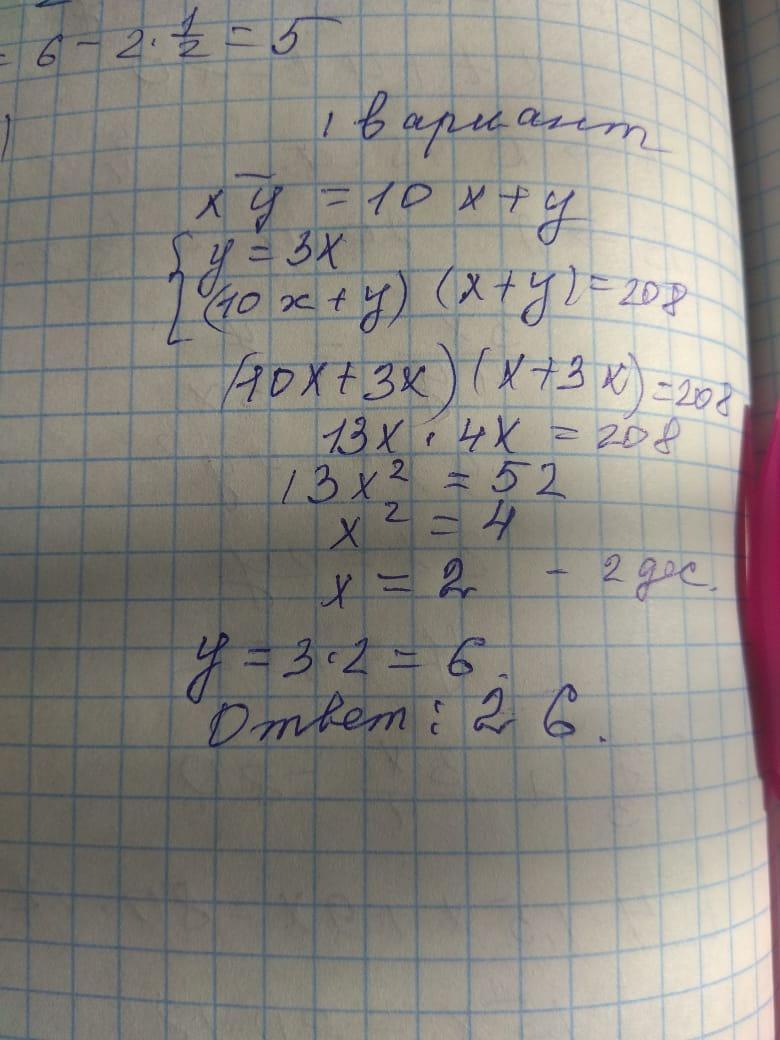 = 6 - 2 · 1/2 = 5
)
1 вариант
x̅y̅ = 10 x + y
{ y = 3x
(10 x + y) (x + y) = 208
(10x + 3x) (x + 3x) = 208
13x · 4x = 208
13x² = 52
x² = 4
x = 2 - 2 дес.
y = 3 · 2 = 6.
Ответ: 26.